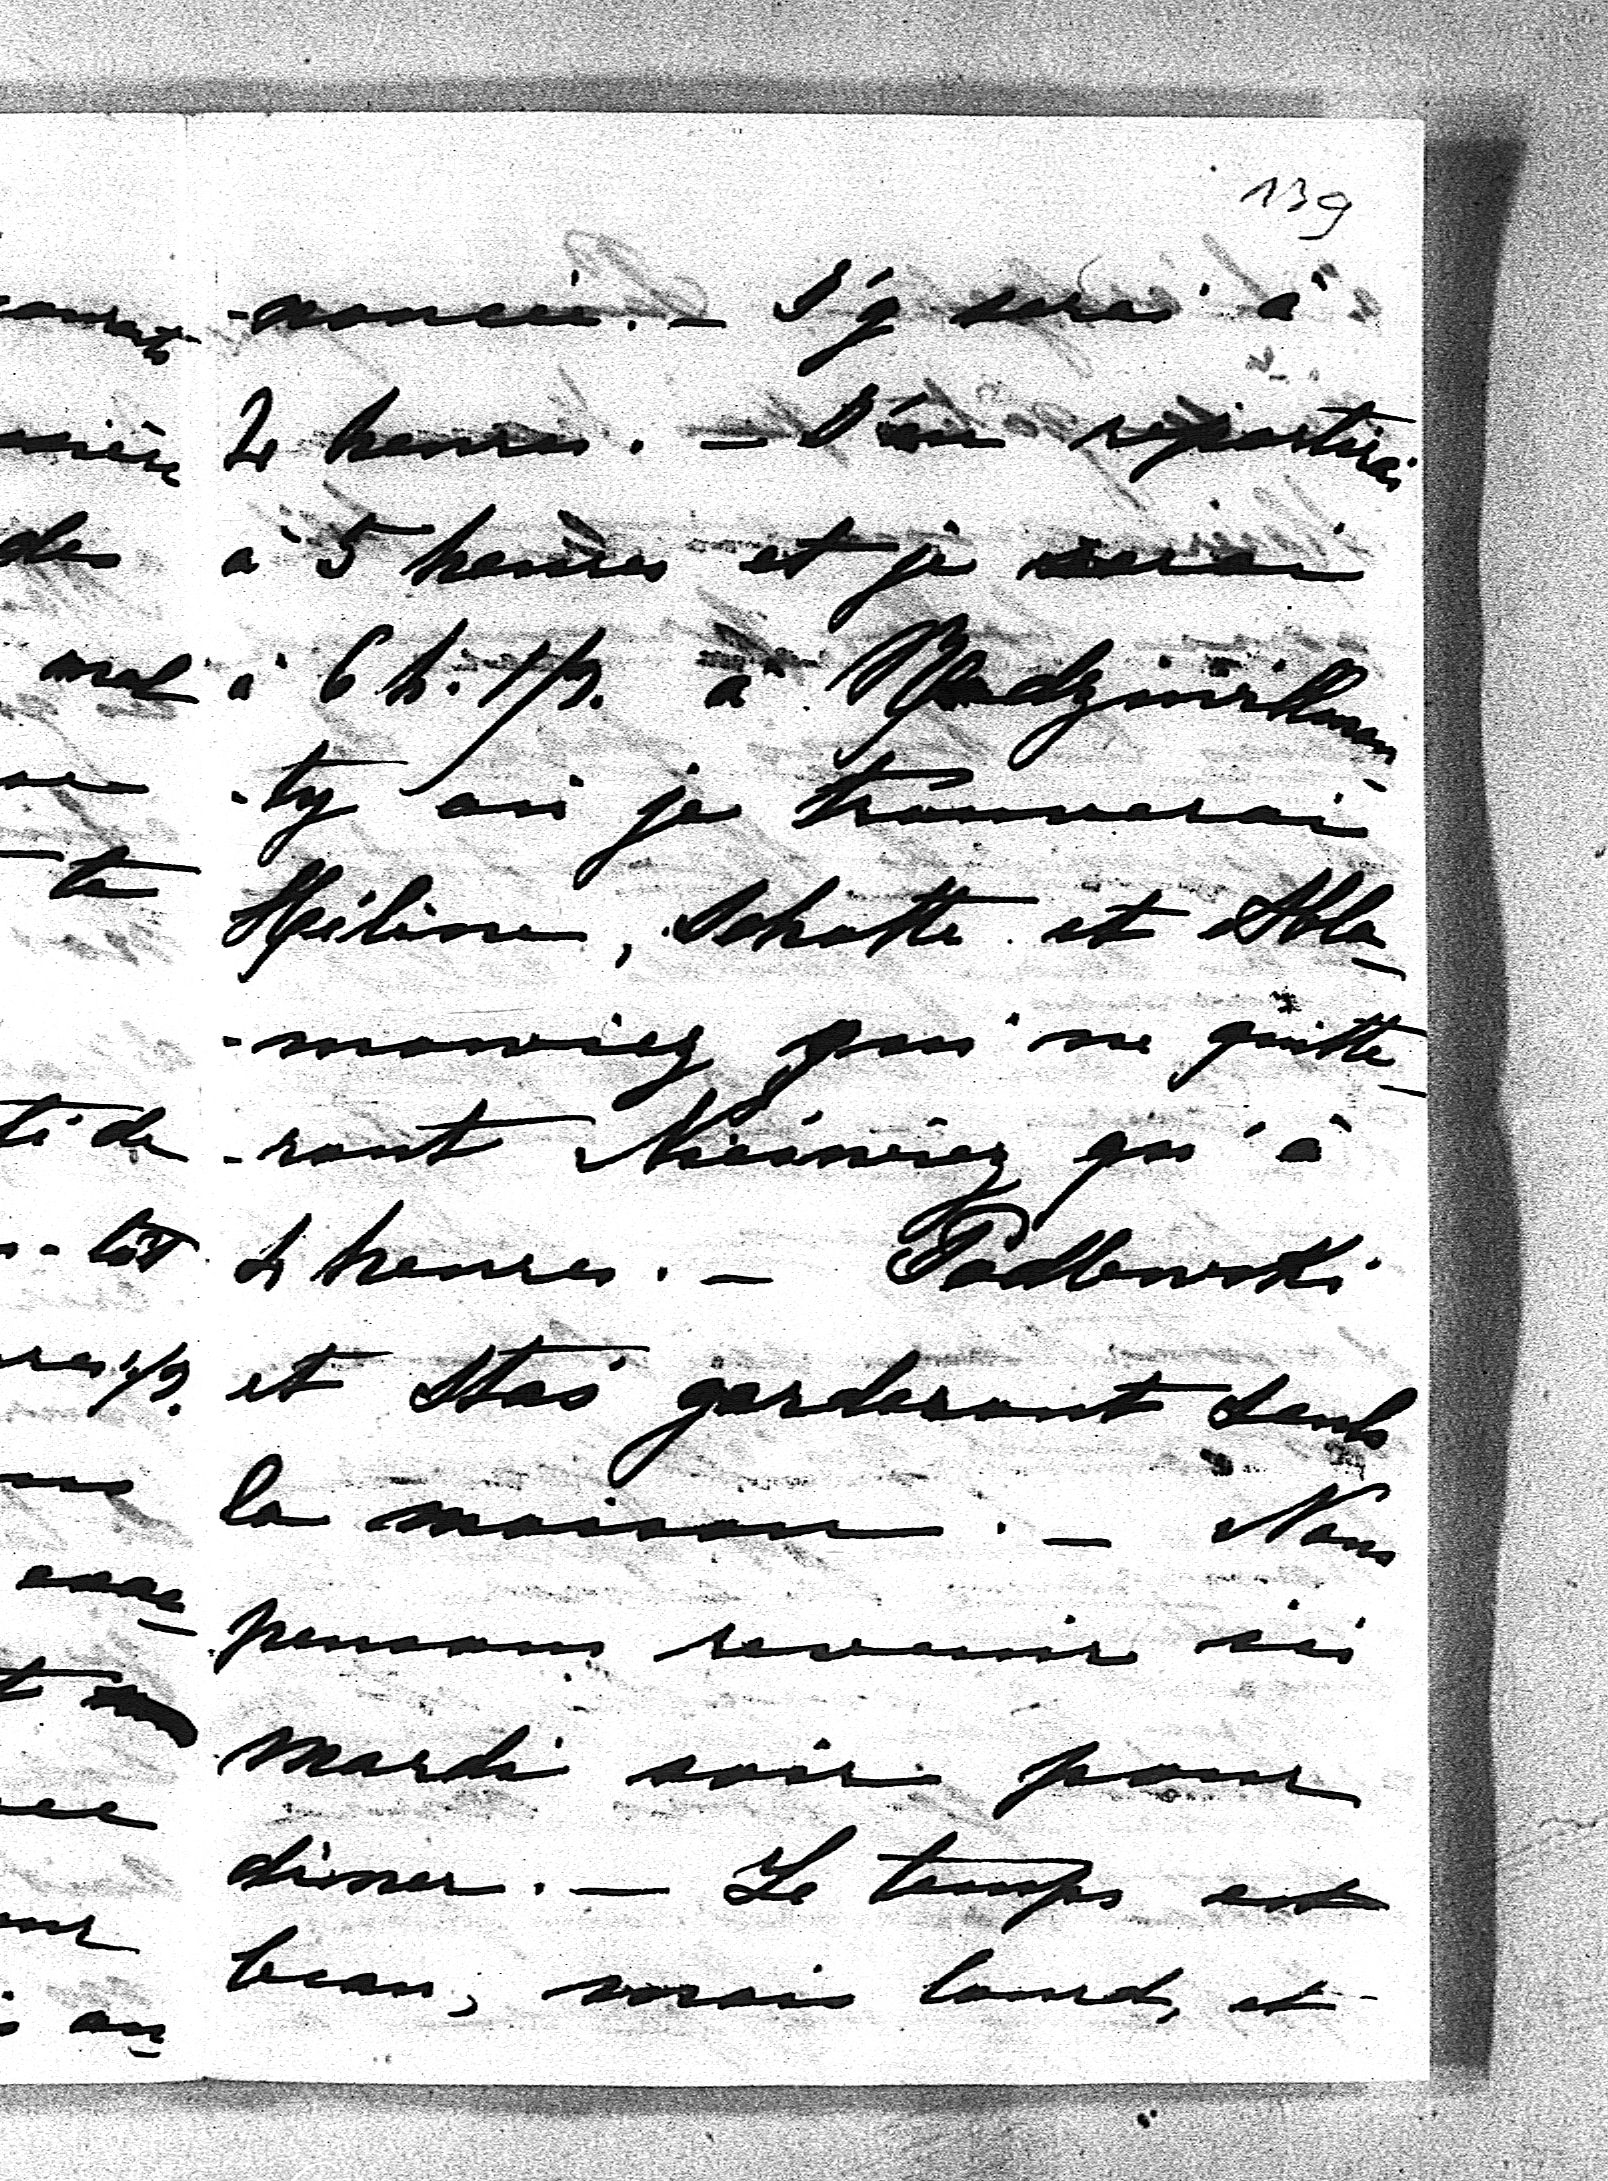 139
-noncée. — J'y serai à
4 heures. — J'en repartirai
à 5 heures et je serai
à 6 h. 1/2. à Radziwillmon-
-ty où je trouverai
Hélène, Schotte et Abla-
-mowicz qui ne quitte-
-ront Nieśwież qu'à
4 heures. — Podlewski
et Staś garderont seuls
la maison. — Nous
pensons revenir ici
mardi soir pour
dîner. — Le temps est
beau, mais lourd, et